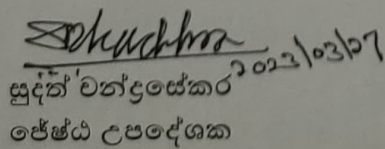 2023/03/27
සුදත් චන්ද්‍රසේකර
ජේෂ්ඨ උපදේශක